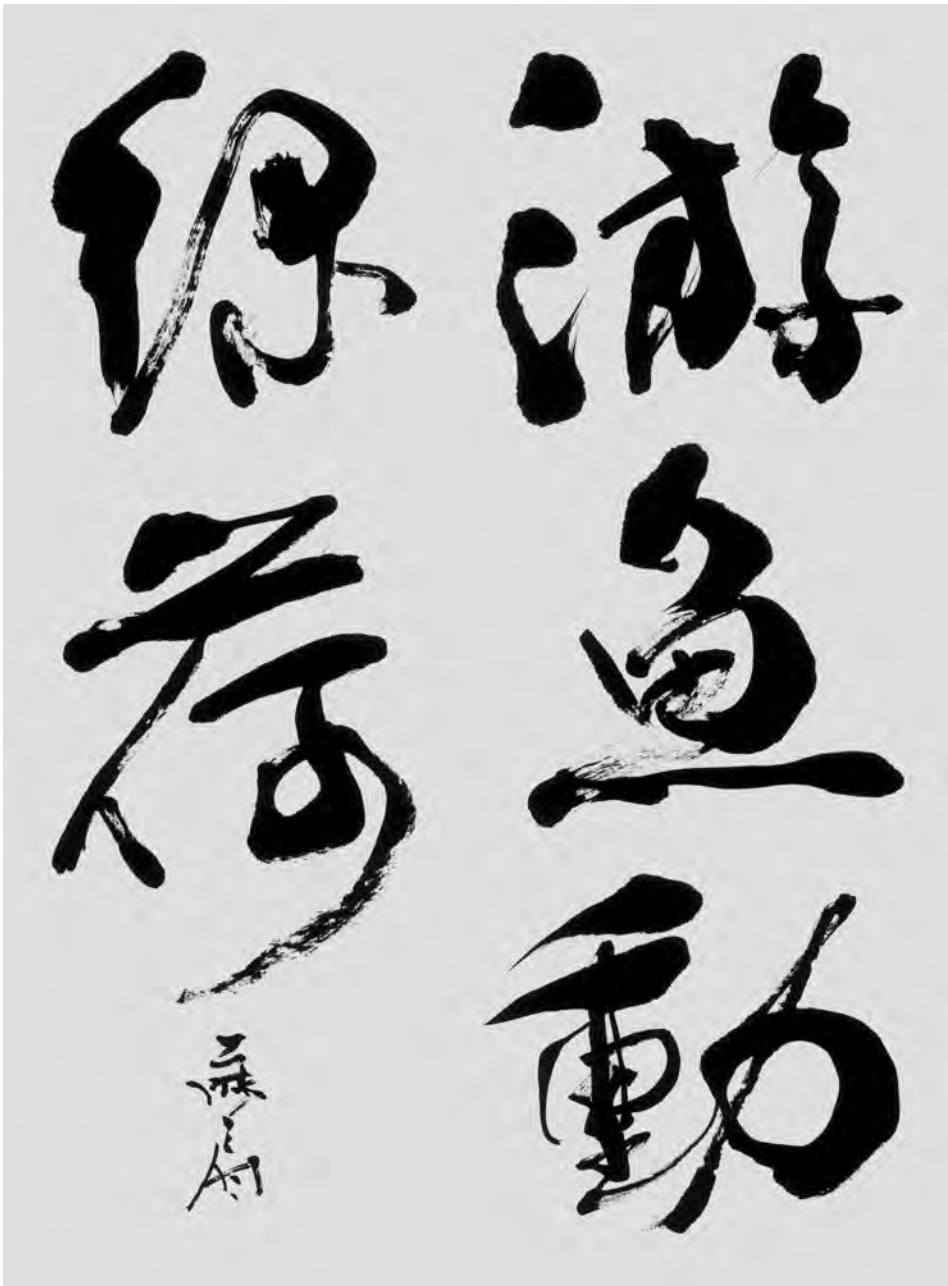 游魚動
緑荷